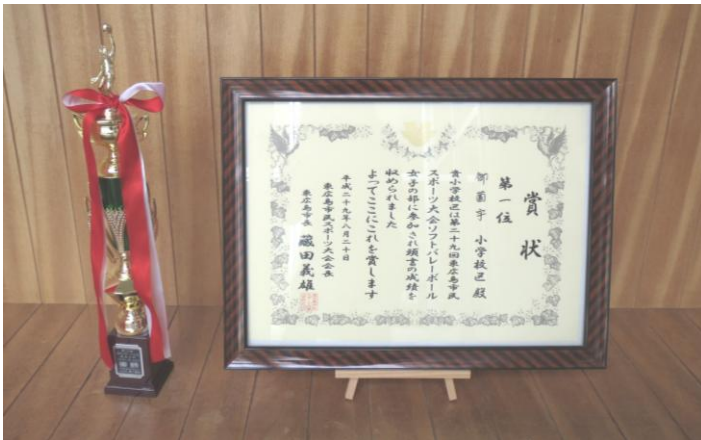 賞状
第一位
御薗宇 小学校区殿
貴小学校区は第二十九回東広島市民
スポーツ大会ソフトバレーボール
女子の部に参加され頭書の成績を
収められました
よってここにこれを賞します
平成二十九年八月二十日
東広島市民スポーツ大会会長
東広島市長 藏田義雄
優勝